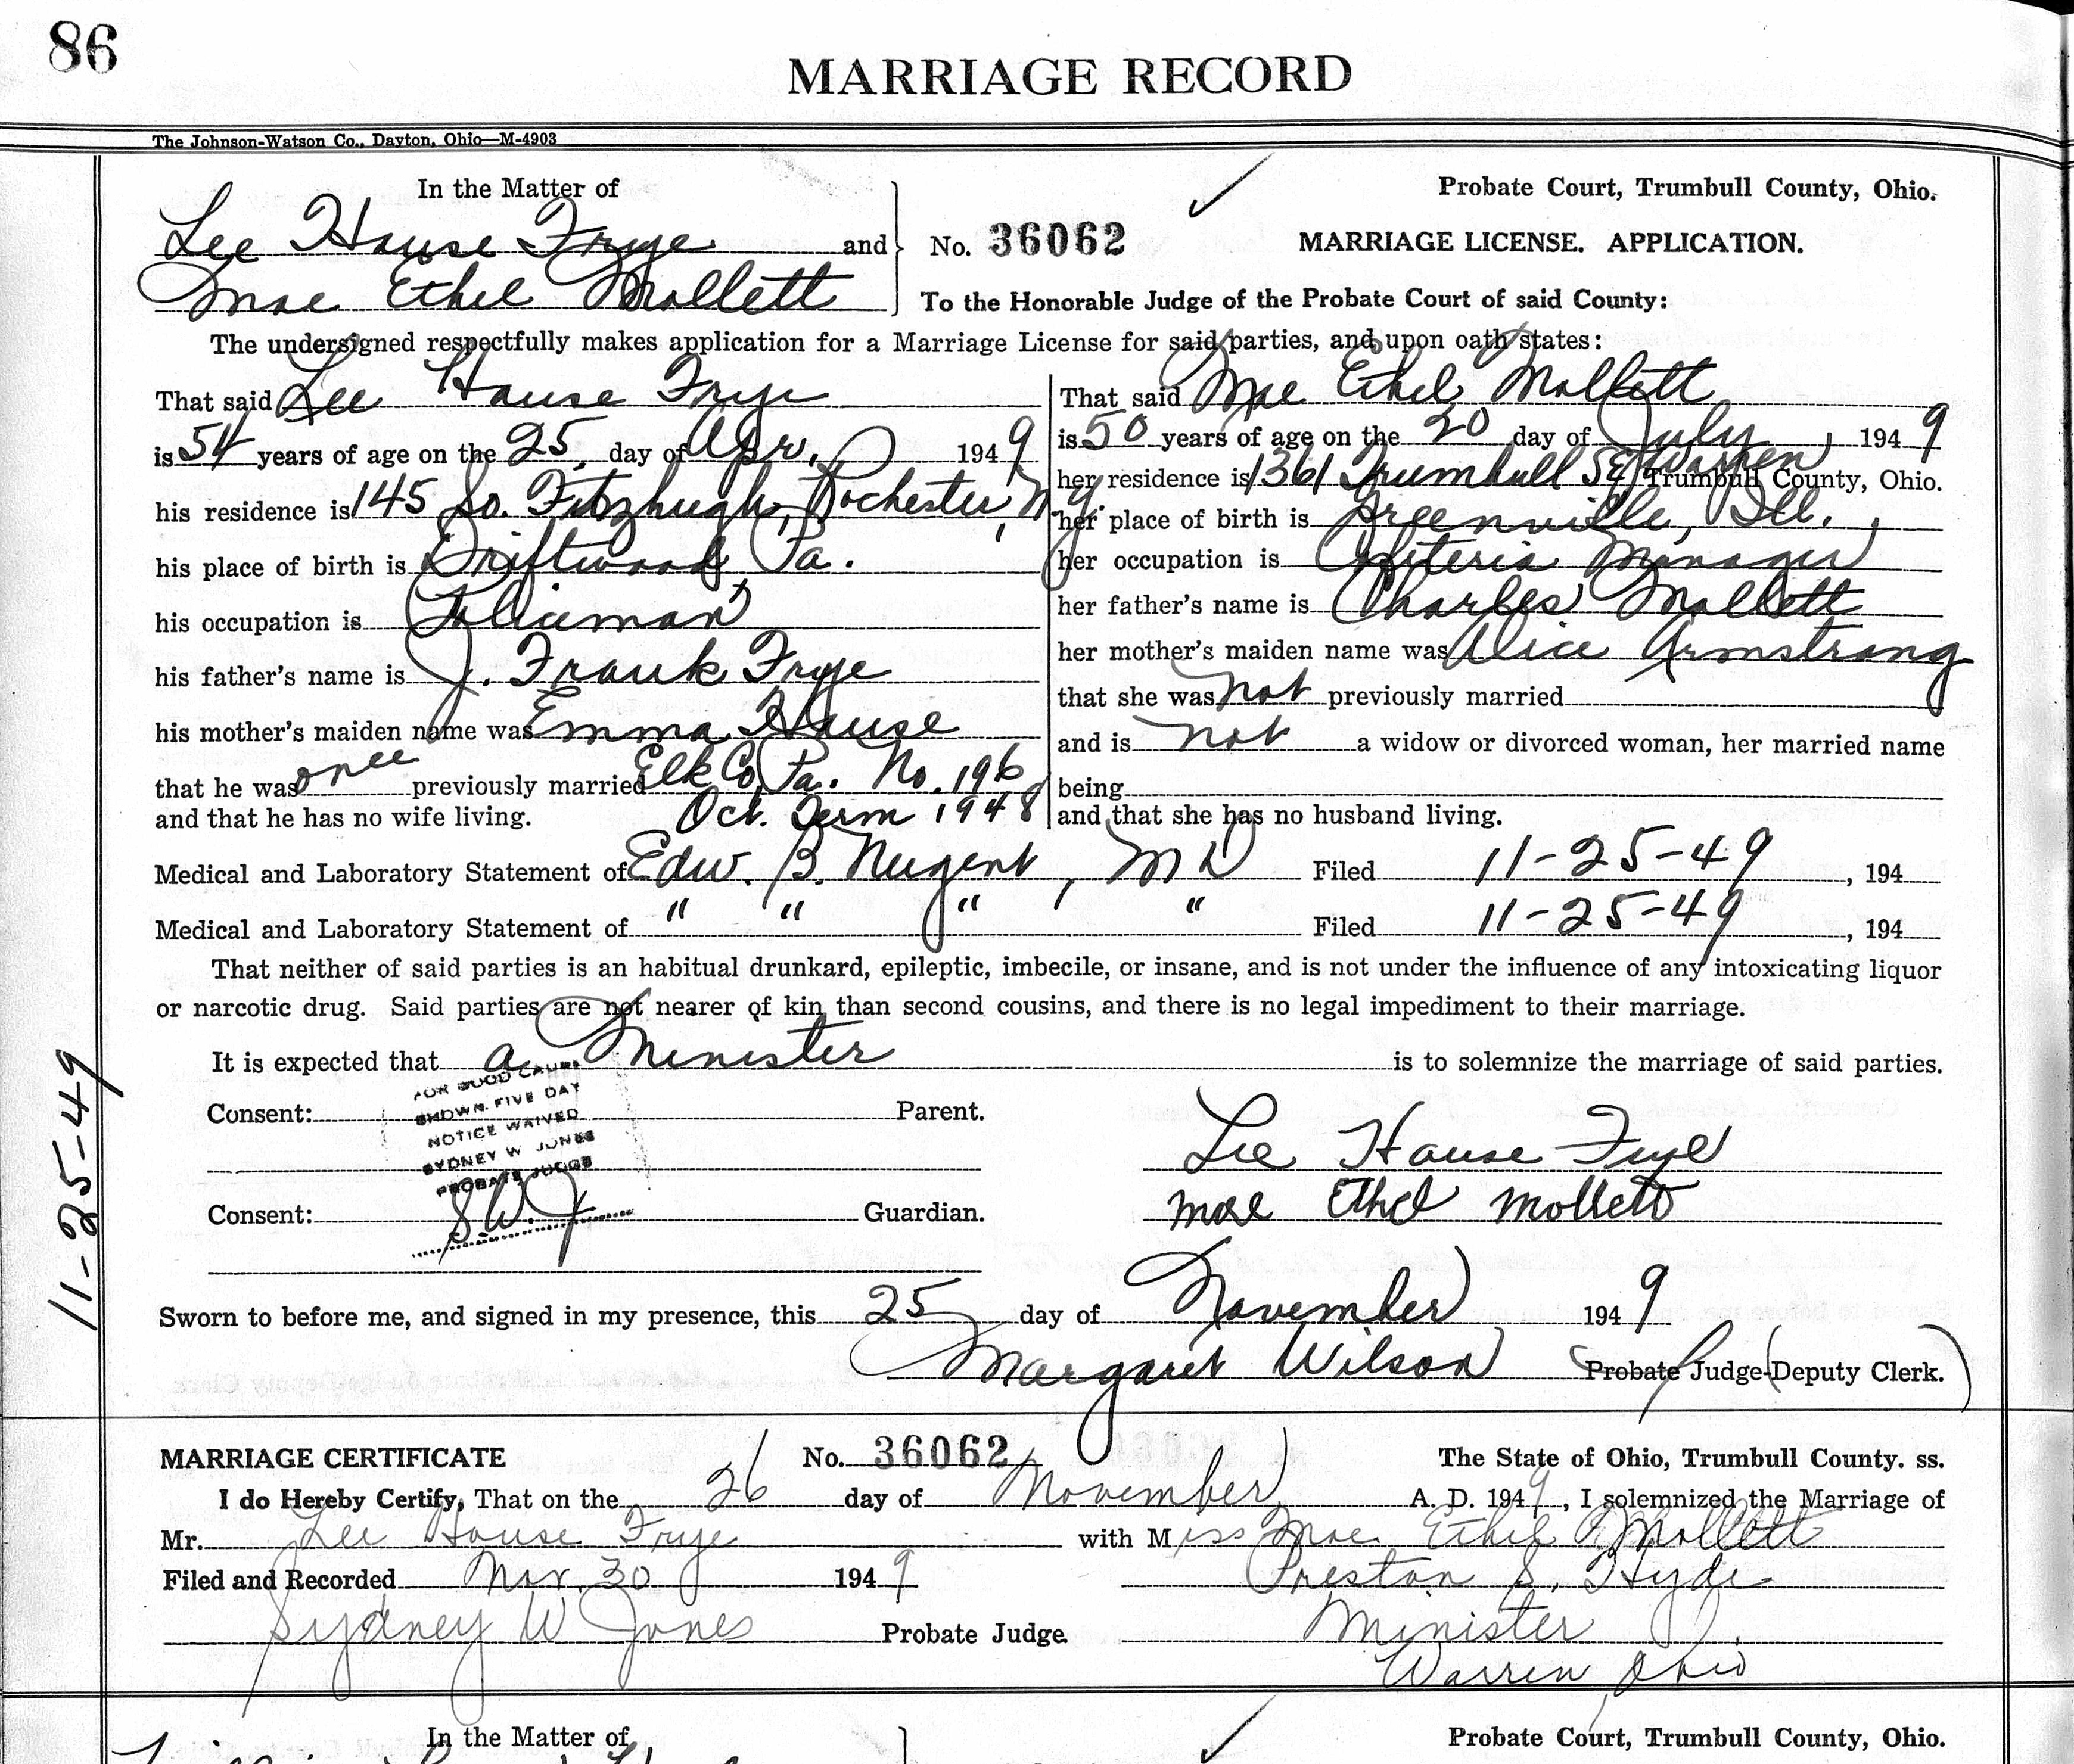 86
MARRIAGE RECORD
The Johnson-Watson Co., Dayton, Ohio—M-4903
In the Matter of
Probate Court, Trumbull County, Ohio.
Lee Hause Frye and
No. 36062
MARRIAGE LICENSE. APPLICATION.
Mae Ethel Mollett
To the Honorable Judge of the Probate Court of said County:
The undersigned respectfully makes application for a Marriage License for said parties, and upon oath states:
That said Lee Hause Frye
is 54 years of age on the 25 day of Apr. 1949
his residence is 145 So. Fitzhugh, Rochester, N.Y.
his place of birth is Driftwood Pa.
his occupation is Policeman
his father's name is J. Frank Frye
his mother's maiden name was Emma Hause
that he was once previously married Elk Co, Pa. No. 196
and that he has no wife living. Oct. Term 1948
That said Mae Ethel Mollett
is 50 years of age on the 20 day of July, 1949
her residence is 1361 Trumbull SE Warren, Trumbull County, Ohio.
her place of birth is Greenville, Ill.
her occupation is Cafeteria Manager
her father's name is Charles Mollett
her mother's maiden name was Alice Armstrong
that she was not previously married
and is not a widow or divorced woman, her married name
being
and that she has no husband living.
Medical and Laboratory Statement of Edw. B. Nugent, MD Filed 11-25-49, 194
Medical and Laboratory Statement of " " " " Filed 11-25-49, 194
That neither of said parties is an habitual drunkard, epileptic, imbecile, or insane, and is not under the influence of any intoxicating liquor
or narcotic drug. Said parties are not nearer of kin than second cousins, and there is no legal impediment to their marriage.
It is expected that a Minister is to solemnize the marriage of said parties.
FOR GOOD CAUSE
SHOWN. FIVE DAY
NOTICE WAIVED
SYDNEY W JONES
PROBATE JUDGE
S.W.J
Consent: Parent.
Lee Hause Frye
Consent: Guardian.
Mae Ethel Mollett
11-25-49
Sworn to before me, and signed in my presence, this 25 day of November 1949
Margaret Wilson Probate Judge-(Deputy Clerk.)
MARRIAGE CERTIFICATE No. 36062 The State of Ohio, Trumbull County. ss.
I do Hereby Certify, That on the 26 day of November A. D. 1949, I solemnized the Marriage of
Mr. Lee House Frye with Miss Mae Ethel Mollett
Filed and Recorded Nov. 30 1949 Preston S. Hyde
Sydney W Jones Probate Judge Minister
Warren, Ohio
In the Matter of
Probate Court, Trumbull County, Ohio.